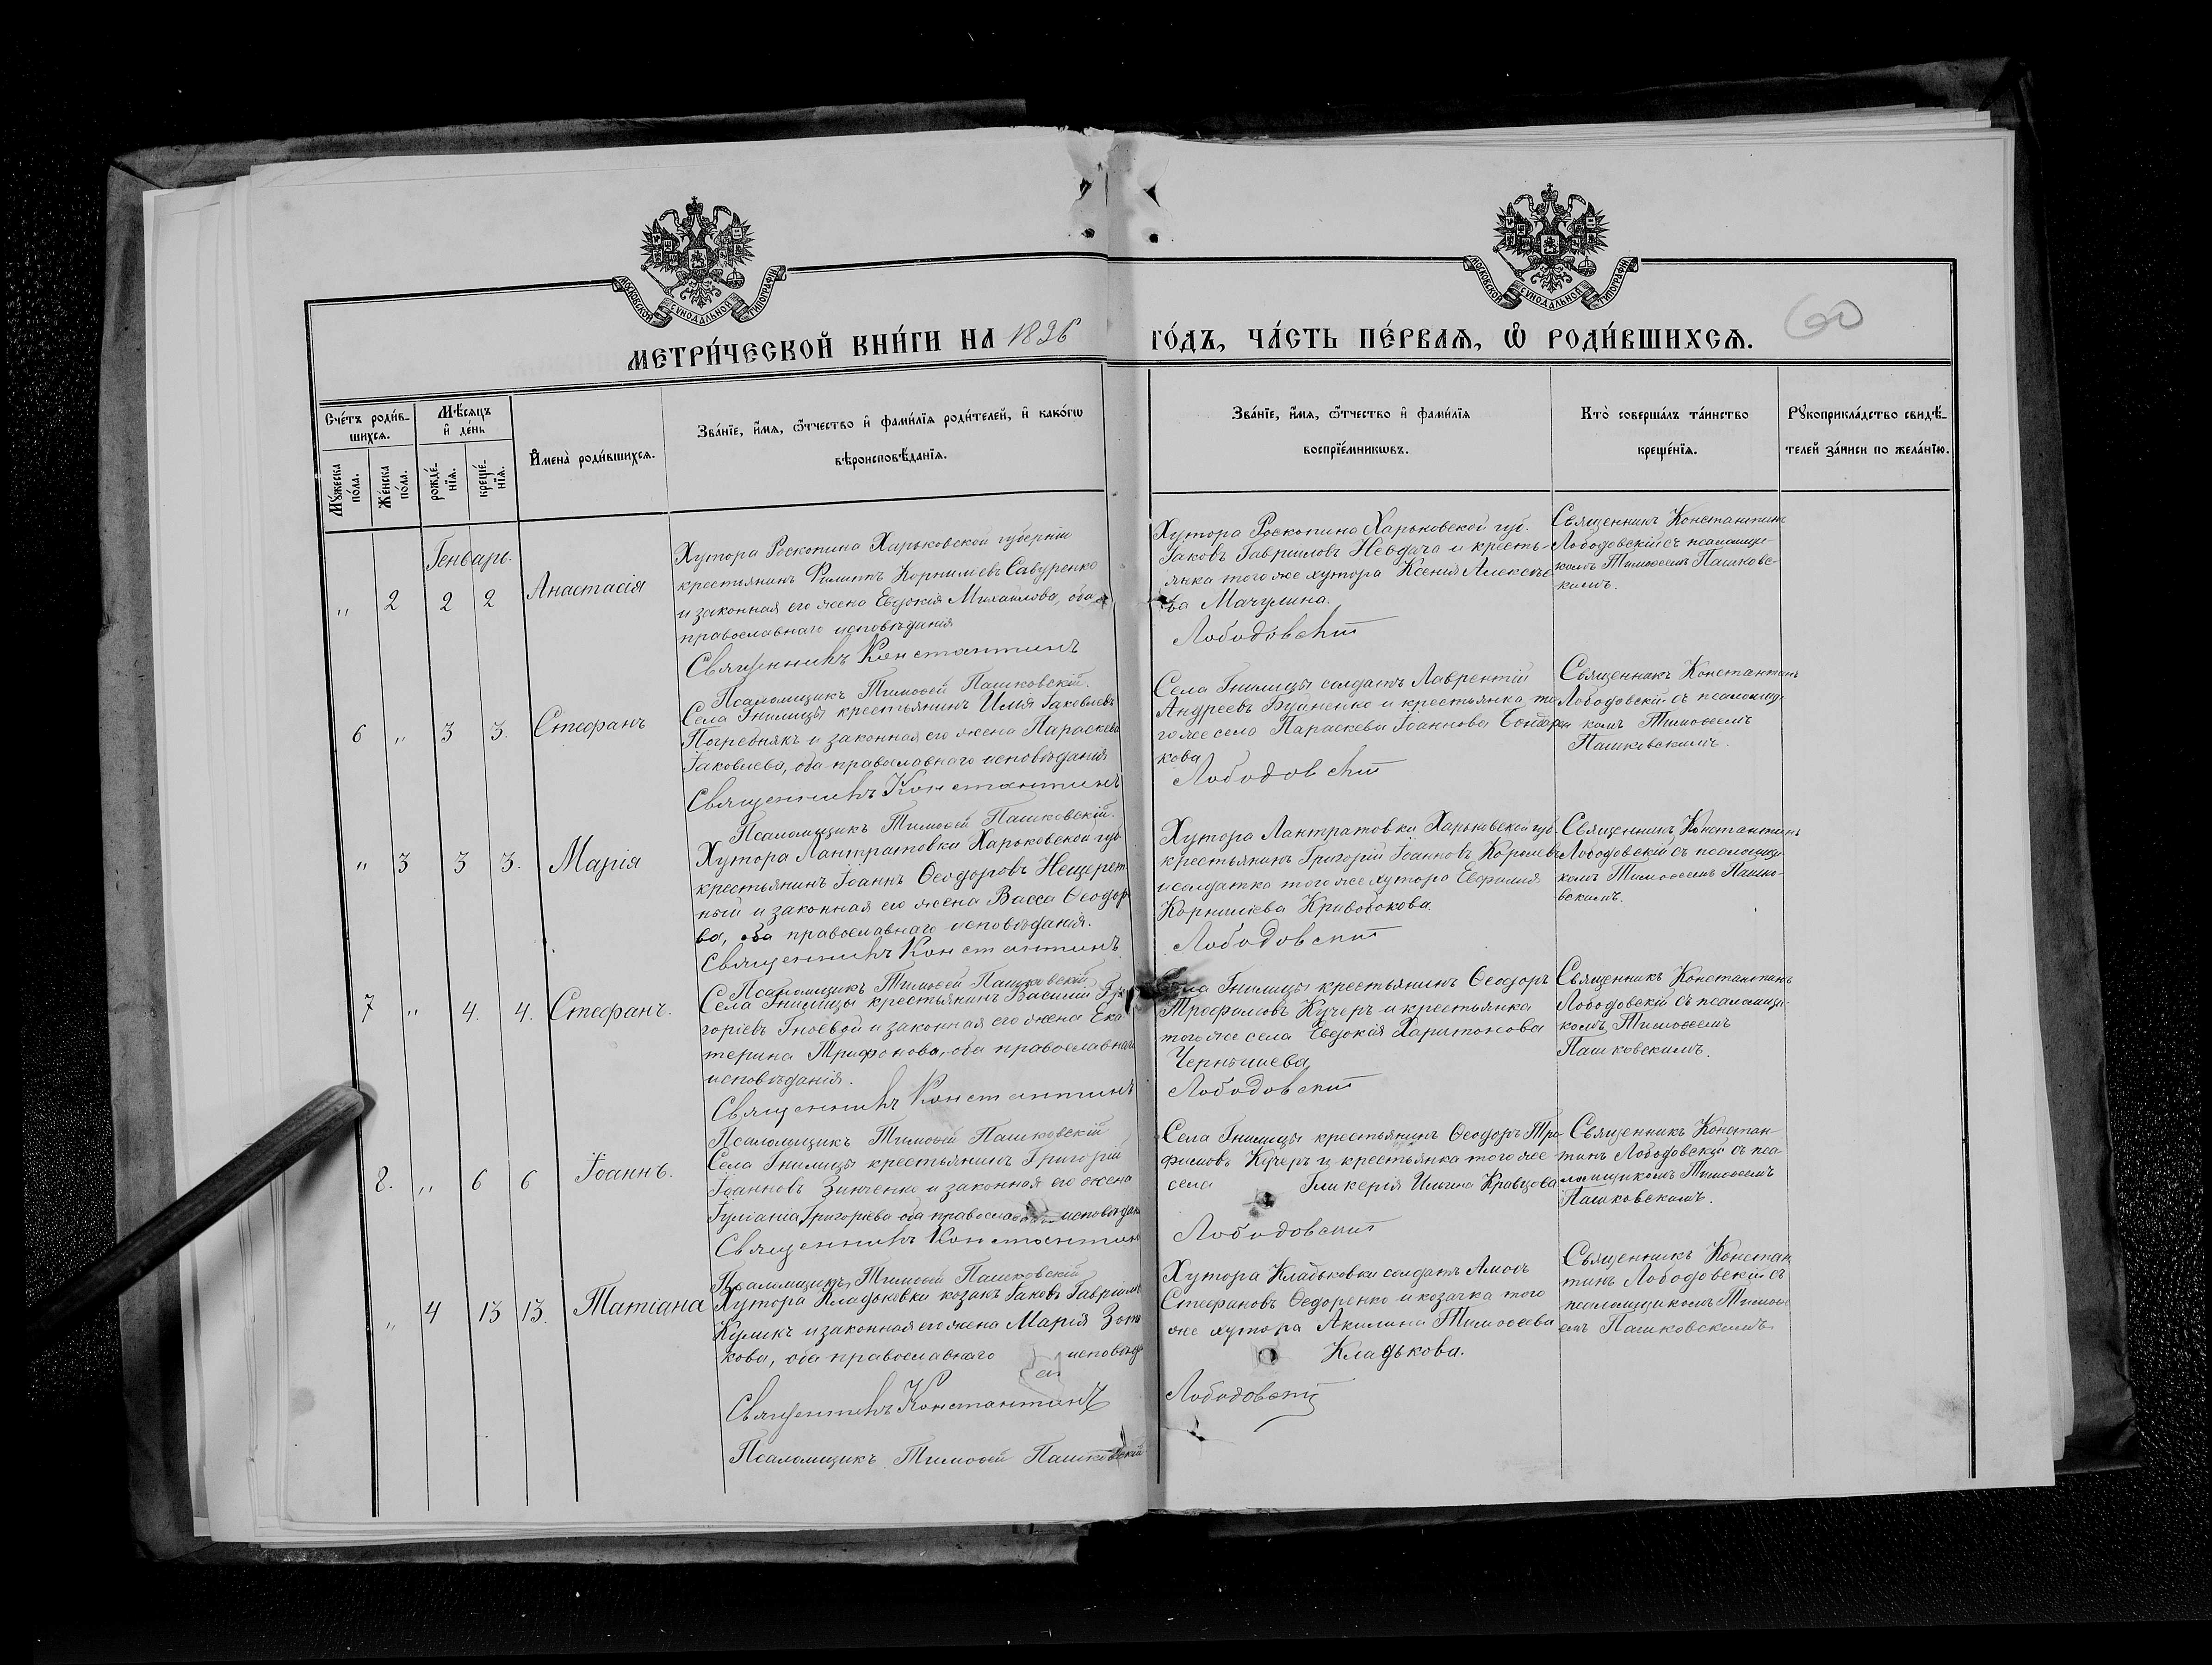 МОСКОВСКОЙ СУНОДАЛЬНОЙ ТИПОГРАФІИ
МОСКОВСКОЙ СУНОДАЛЬНОЙ ТИПОГРАФІИ
МЕТРИ́ЧЕСКОЙ КНИ́ГИ НА 1896
ГО́ДЪ, ЧА́СТЬ ПЕ́РВАЯ, Ѡ РОДИ́ВШИХСЯ.
60
Сче́тъ роди́в-
шихся.
Мꙋ́жеска по́ла.
Же́нска по́ла.
Мѣ́сяцъ и де́нь
рожде́-нїя.
креще́-нїя.
Имена̀ роди́вшихся.
Зва́нїе, и́мя, ѻ҆́тчество и фами́лїя роди́телей, и како́гѡ
вѣроисповѣ́данїя.
Зва́нїе, и́мя, ѻ҆́тчество и фами́лїя
воспрїе́мникѡвъ.
Кто̀ соверша́лъ та́инство
креще́нїя.
Рꙋкоприкла́дство свидѣ́-
телей за́писи по жела́нїю.
Генварь.
„ 2 2 2 Анастасія
Хутора Роскопина Харьковской губерніи
крестьянинъ Филиппъ Корнилиевъ Савуренко
и законная его жена Евдокія Михаилова, оба
православнаго исповѣданія
Священникъ Константинъ
Псаломщикъ Тимоѳей Пашковскій.
Хутора Роскопина Харьковской губ.
Іаковъ Гавриловъ Невдача и кресть-
янка того же хутора Ксенія Алексѣе
ва Мачулина.
Лободовскій
Священникъ Константинъ
Лободовскій съ псаломщи-
комъ Тимоѳеемъ Пашковс-
кимъ.
6 „ 3 3. Стефанъ
Села Гнилицы крестьянинъ Илія Іаковлевъ
Погребнякъ и законная его жена Параскева
Іаковлева, оба православнаго исповѣданія
Священникъ Константинъ
Псаломщикъ Тимоѳей Пашковскій.
Села Гнилицы солдатъ Лаврентій
Андреевъ Буйненко и крестьянка то
го же села Параскева Іоаннова Бондар
кова
Лободовскій
Священникъ Константинъ
Лободовскій съ псаломщи
комъ Тимоѳеемъ
Пашковскимъ.
„ 3 3 3. Марія
Хутора Лантратовки Харьковской губ.
крестьянинъ Іоаннъ Ѳеодоровъ Нещерет
ный и законная его жена Васса Ѳеодор
ва, оба православнаго исповѣданія.
Священникъ Константинъ
Псаломщикъ Тимоѳей Пашковскій.
Хутора Лантратовки Харьковской губ.
крестьянинъ Григорій Іоанновъ Королевъ
и солдатка того же хутора Евфимія
Корнилиева Кривобокова.
Лободовскій
Священникъ Константинъ
Лободовскій съ псаломщи-
комъ Тимоѳеемъ Пашко-
вскимъ.
7 „ 4. 4. Стефанъ.
Села Гнилицы крестьянинъ Василій Гри
горіевъ Гноевой и законная его жена Ека
терина Трифонова, оба православнаго
исповѣданія.
Священникъ Константинъ
Псаломщикъ Тимоѳей Пашковскій
Села Гнилицы крестьянинъ Ѳеодоръ
Трофимовъ Кучеръ и крестьянка
того же села Евдокія Харитонова
Чернышева
Лободовскій
Священникъ Константинъ
Лободовскій съ псаломщи-
комъ Тимоѳеемъ
Пашковскимъ.
8. „ 6 6 Іоаннъ.
Села Гнилицы крестьянинъ Григорій
Іоанновъ Зинченко и законная его жена
Іуліанія Григорiева оба православнаго исповѣдан
Священникъ Константинъ
Псаломщикъ Тимоѳей Пашковскій
Села Гнилицы крестьянинъ Ѳеодоръ Тро
фимовъ Кучеръ и крестьянка того же
села Гликерія Ильина Кравцова
Лободовскій
Священникъ Констан
тинъ Лободовскій съ пса
ломщикомъ Тимоѳеемъ
Пашковскимъ.
„ 4 13 13. Татіана
Хутора Кладьковки козакъ Іаковъ Гавріиловъ
Куликъ и законная его жена Марія Зот
кова, оба православнаго исповѣд
Священникъ Константинъ
Псаломщикъ Тимоѳей Пашковскій
Хутора Кладьковки солдатъ
Стефановъ Ѳедоренко и козачка того
же хутора Акилина Тимоѳеева
Кладькова.
Лободовскій
Священникъ Констан
тинъ Лободовскій съ
псаломщикомъ Тимоѳе
емъ Пашковскимъ